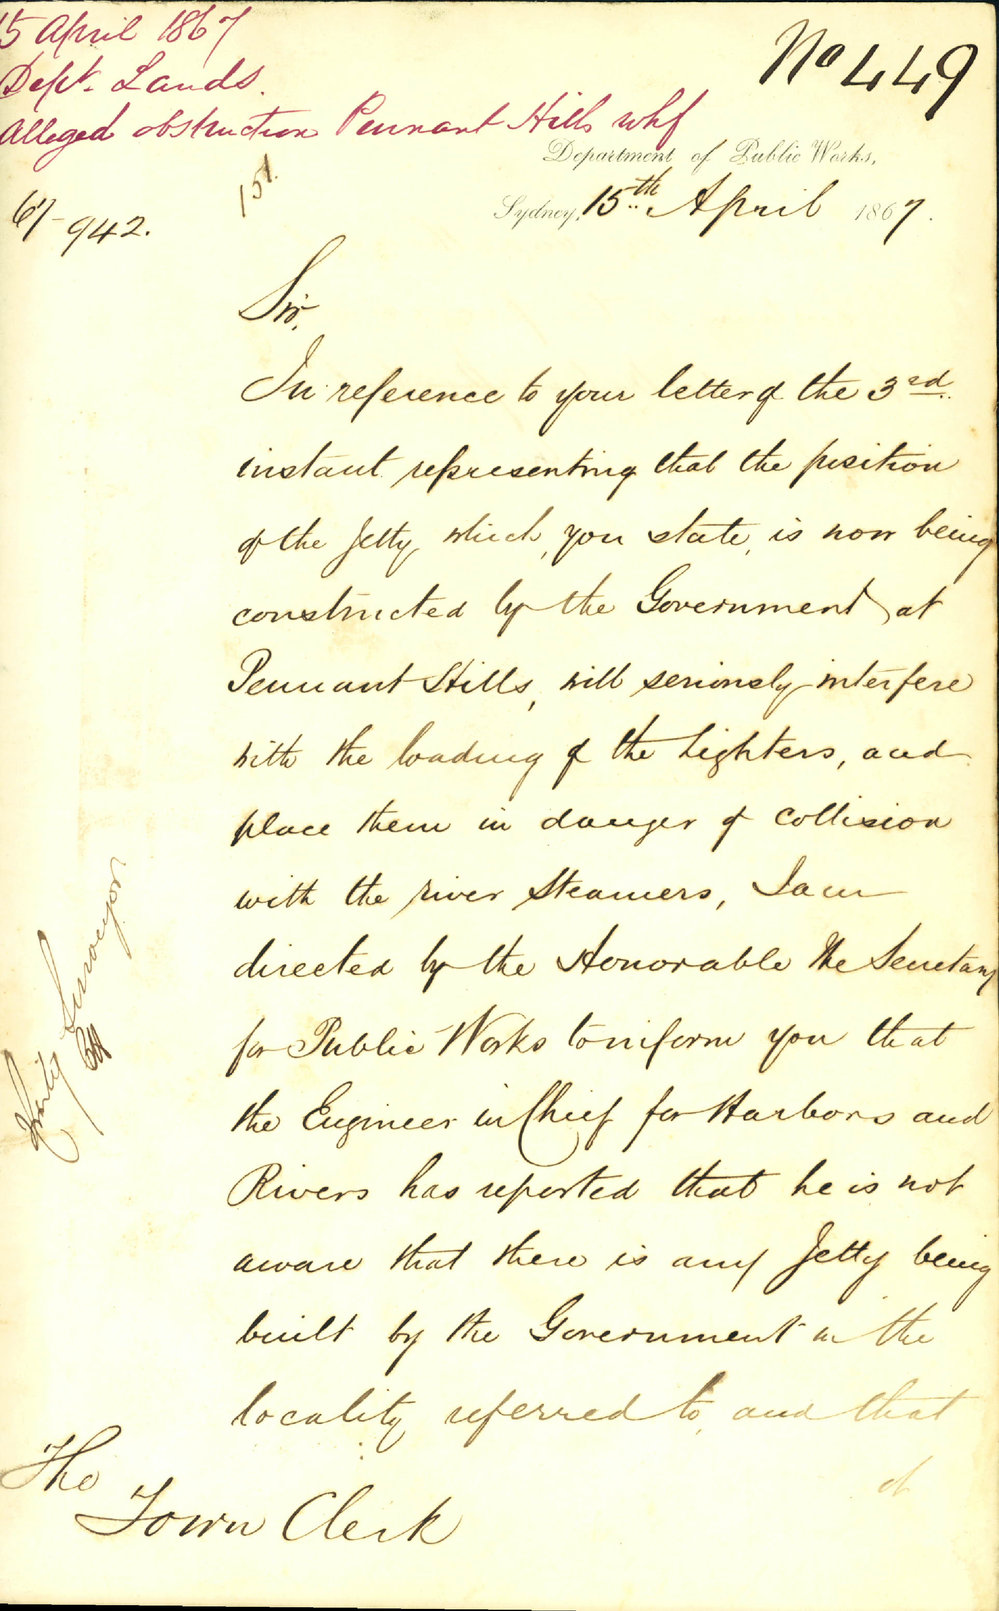 15 April 1867
Dept. Lands.
Alleged obstruction Pennant Hills whf
No 449
Department of Public Works,
Sydney, 15th April 1867.
151.
67-942.
Sir,
In reference to your letter of the 3rd
instant representing that the position
of the Jetty which, you state, is now being
constructed by the Government at
Pennant Hills, will seriously interfere
with the loading of the Lighters, and
place them in danger of collision
with the river Steamers, I am
directed by the Honorable the Secretary
for Public Works to inform you that
the Engineer in Chief for Harbors and
Rivers has reported that he is not
aware that there is any Jetty being
built by the Government in the
locality referred to, and that
of
The
Town Clerk
City Surveyor